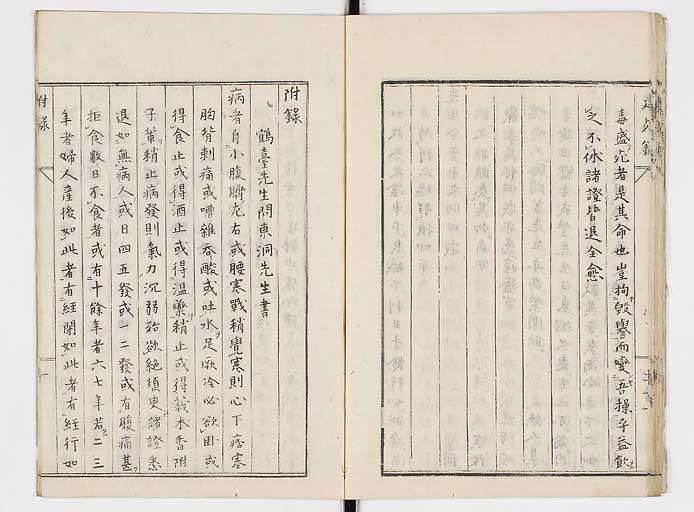 毒盛死者是其命也豈拘毀譽而變吾操乎益飲
之不休諸證皆退全愈
附錄
鶴臺先生問東洞先生書
病者自小腹臍左右或腰寒戰稍覺寒則心下痞塞
胸背刺痛或嘈雜吞酸或吐水足厥冷必欲臥或
得食止或得酒止或得溫藥稍止或得莪朮香附
子輩稍止病發則氣力沉弱殆欲絕須更諸證悉
退如無病人或日四五發或一二發或有腹痛甚
拒食數日不食者或有十餘年者六七年若二三
年者婦人產後如此者有經閉如此者有經行如
附錄